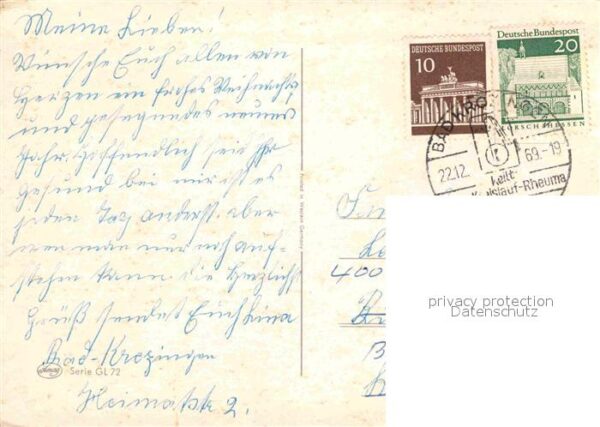 Meine Lieben!
Wünsche Euch allen von
Herzen ein frohes Weihnachts
und gesegnendes neues
Jahr. Hoffendlich seid ihr
gesund bei mir ist es
jeden Tag anderst. aber
wen man nur noch auf-
stehen kann die herzlichst
Grüß sendet Euch Lina
Bad-Krozingen
Heimatstr 2.
Serie GL 72
Printed in Western Germany
DEUTSCHE BUNDESPOST
10
Deutsche Bundespost
20
LORSCH/HESSEN
BAD KROZINGEN
22.12. 69.-19
heilt
Kreislauf-Rheuma
400
privacy protection
Datenschutz